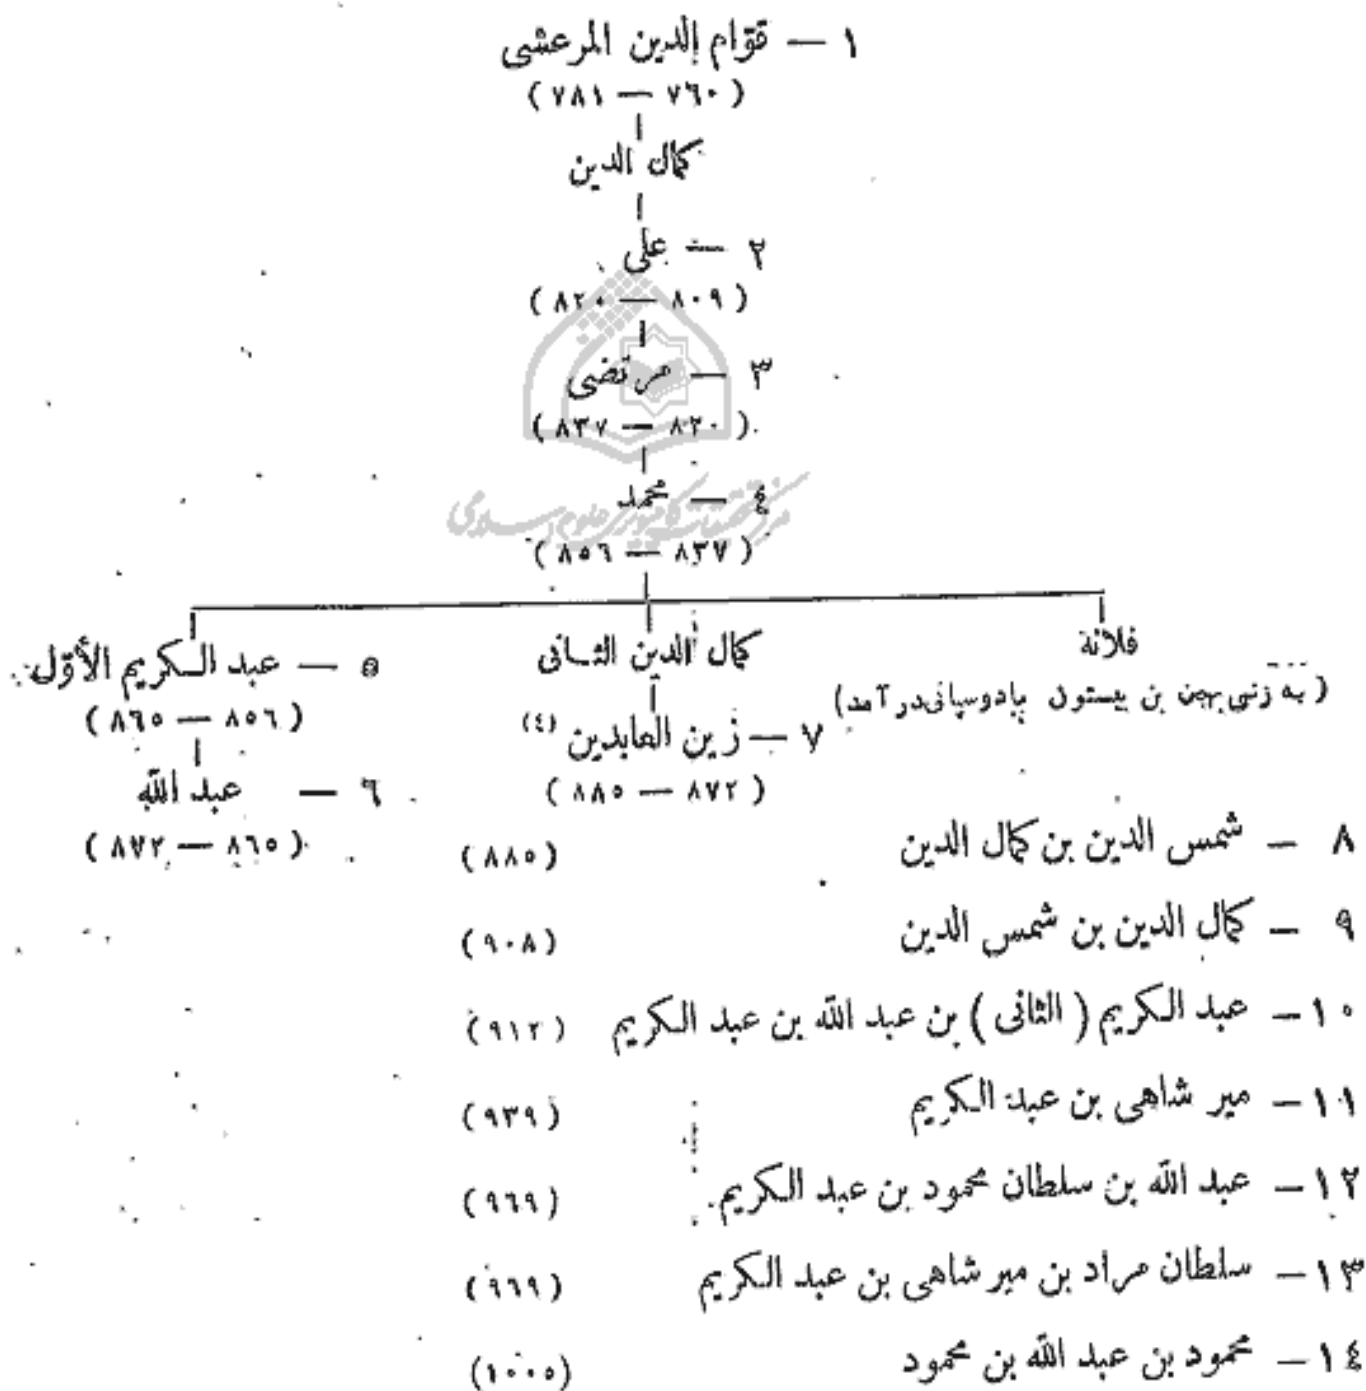 ١ — قوّام الدين المرعشى
(٧٦٠ — ٧٨١)
كمال الدين
٢ — على
(٨٠٩ — ٨٢٠)
٣ — مرتضى
(٨٢٠ — ٨٣٧)
٤ — محمد
مرکز تحقیقات کامپیوتری علوم اسلامی
(٨٣٧ — ٨٥٦)
فلانة
(به زنی بهمن بن بیستون پادوسپانی درآمد)
كمال الدين الثانى
٧ — زين العابدين (٤)
(٨٧٢ — ٨٨٥)
٥ — عبد الكريم الأوّل
(٨٥٦ — ٨٦٥)
٦ — عبد الله
(٨٦٥ — ٨٧٢)
٨ — شمس الدين بن كمال الدين (٨٨٥)
٩ — كمال الدين بن شمس الدين (٩٠٨)
١٠ — عبد الكريم (الثانى) بن عبد الله بن عبد الكريم (٩١٢)
١١ — مير شاهى بن عبد الكريم (٩٣٩)
١٢ — عبد الله بن سلطان محمود بن عبد الكريم (٩٦٩)
١٣ — سلطان مراد بن مير شاهى بن عبد الكريم (٩٦٩)
١٤ — محمود بن عبد الله بن محمود (١٠٠٥)